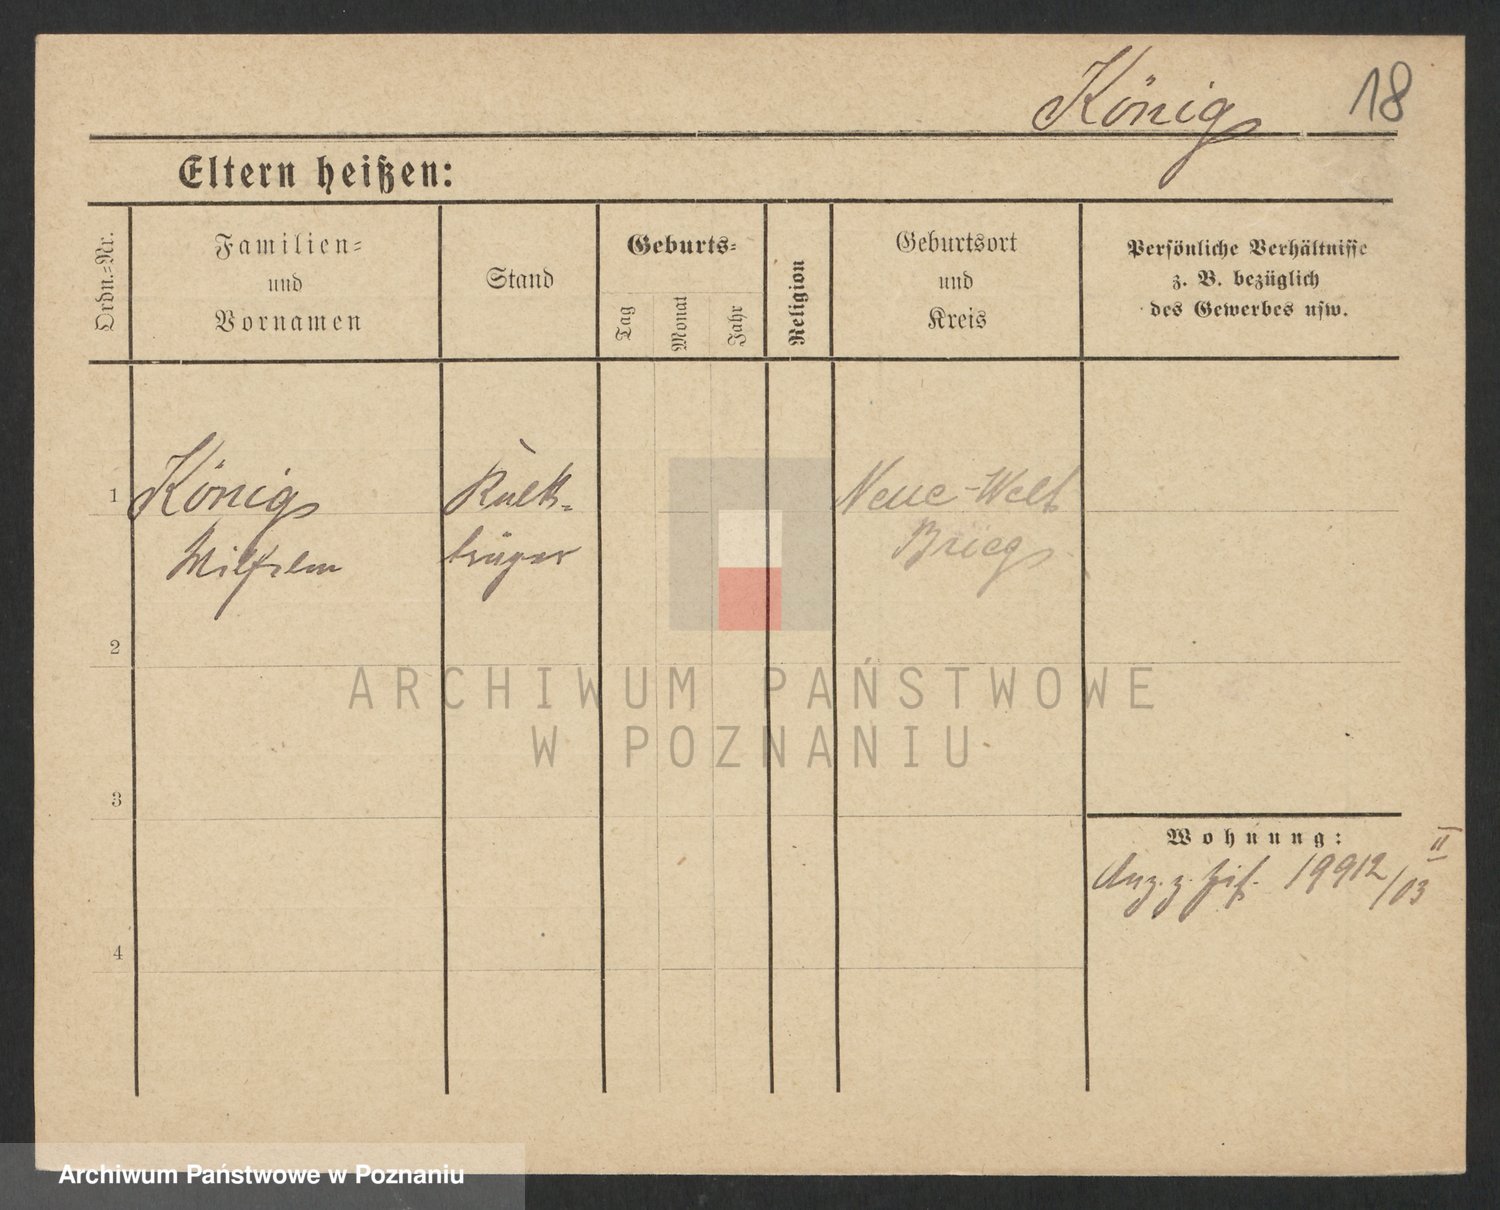 König
18
Eltern heißen:
Ordn.-Nr.
Familien-
und
Vornamen
Stand
Geburts-
Tag
Monat
Jahr
Religion
Geburtsort
und
Kreis
Persönliche Verhältnisse
z. B. bezüglich
des Gewerbes usw.
1
König
Wilhelm
Kalk-
träger
Neue-Welt
Brieg
2
ARCHIWUM PAŃSTWOWE
W POZNANIU
3
Wohnung:
19912
II
/03
4
Archiwum Państwowe w Poznaniu